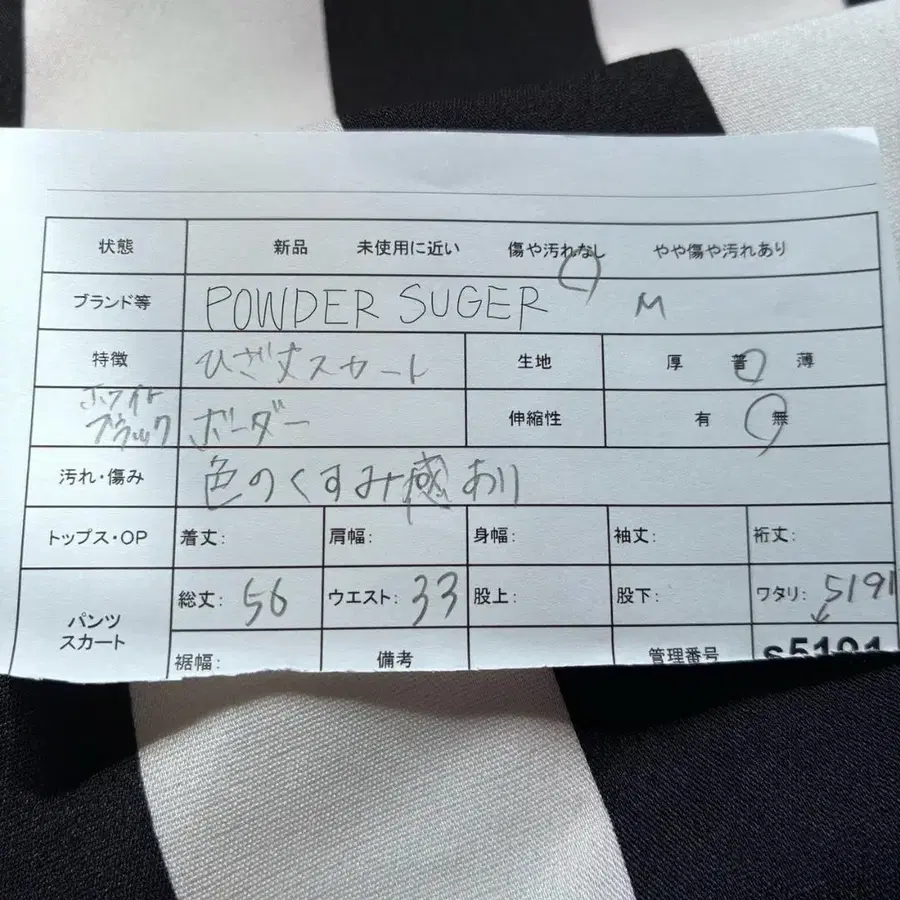 状態 新品 未使用に近い 傷や汚れなし やや傷や汚れあり
ブランド等 POWDER SUGER M
特徴 ひざ丈スカート 生地 厚 普 薄
ホワイト
ブラック ボーダー 伸縮性 有 無
汚れ・傷み 色のくすみ感あり
トップス・OP 着丈: 肩幅: 身幅: 袖丈: 裄丈:
パンツ
スカート
総丈: 56 ウエスト: 33 股上: 股下: ワタリ: 5191
裾幅: 備考 管理番号 s5191